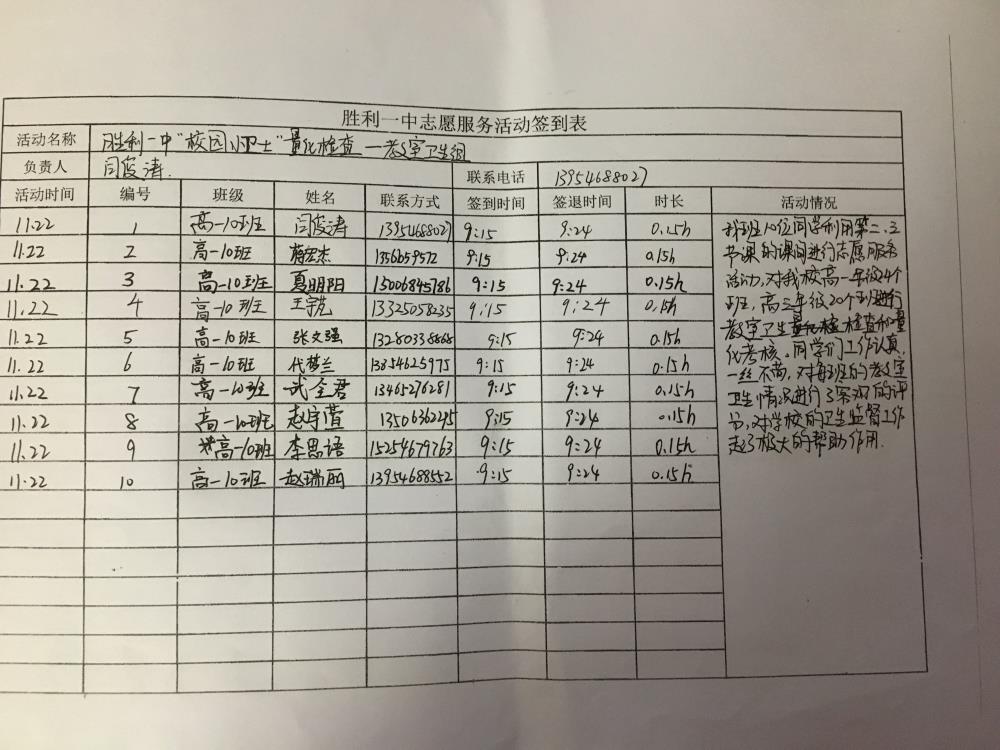 胜利一中志愿服务活动签到表
活动名称 胜利一中"校园小卫士"量化检查—教室卫生组
负责人 闫俊涛. 联系电话 13954688027
活动时间 编号 班级 姓名 联系方式 签到时间 签退时间 时长 活动情况
11.22 1 高一10班 闫俊涛 13954688027 9:15 9:24 0.15h
11.22 2 高一10班 蒋宏杰 1356659572 9:15 9:24 0.15h
11.22 3 高一10班 夏明阳 15006845786 9:15 9:24 0.15h
11.22 4 高一10班 13325058235 9:15 9:24 0.15h
11.22 5 高一10班 张文强 13280338868 9:15 9:24 0.15h
11.22 6 高一10班 代梦兰 13854625975 9:15 9:24 0.15h
11.22 7 高一10班 武全君 13461276281 9:15 9:24 0.15h
11.22 8 高一10班 赵宇萱 9:15 9:24 0.15h
11.22 9 高一10班 李思语 15254679763 9:15 9:24 0.15h
11.22 10 高一10班 赵瑞丽 13954688552 9:15 9:24 0.15h
我班10位同学利用第二、三
节课的课间进行志愿服务
活动,对我校高一年级24个
班,高三年级20个班进行
教室卫生检查和量
化考核。同学们工作认真
一丝不苟,对每班的教室
卫生情况进行了客观的评
书,对学校的卫生监督工作
起了极大的帮助作用.